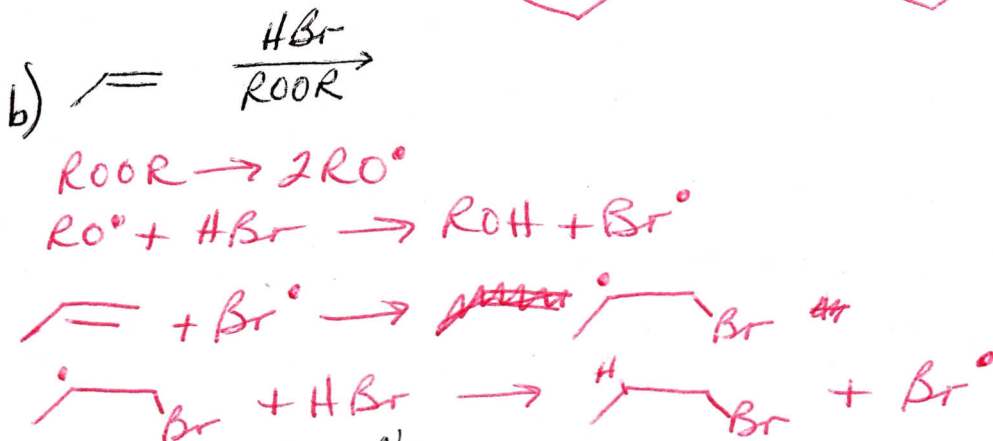 b) HBr
ROOR
ROOR → 2RO•
RO• + HBr → ROH + Br•
+ Br• → • Br
• Br + HBr → H Br + Br•